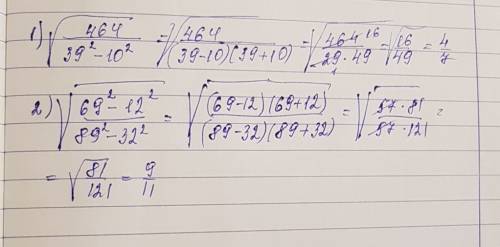 1) √(464 / (39² - 10²)) = √(464 / ((39-10)(39+10))) = √(464 16 / (29 1 · 49)) = √(16/49) = 4/7
2) √((69² - 12²) / (89² - 32²)) = √((69-12)(69+12) / ((89-32)(89+32))) = √((57 · 81) / (57 · 121)) =
= √(81/121) = 9/11